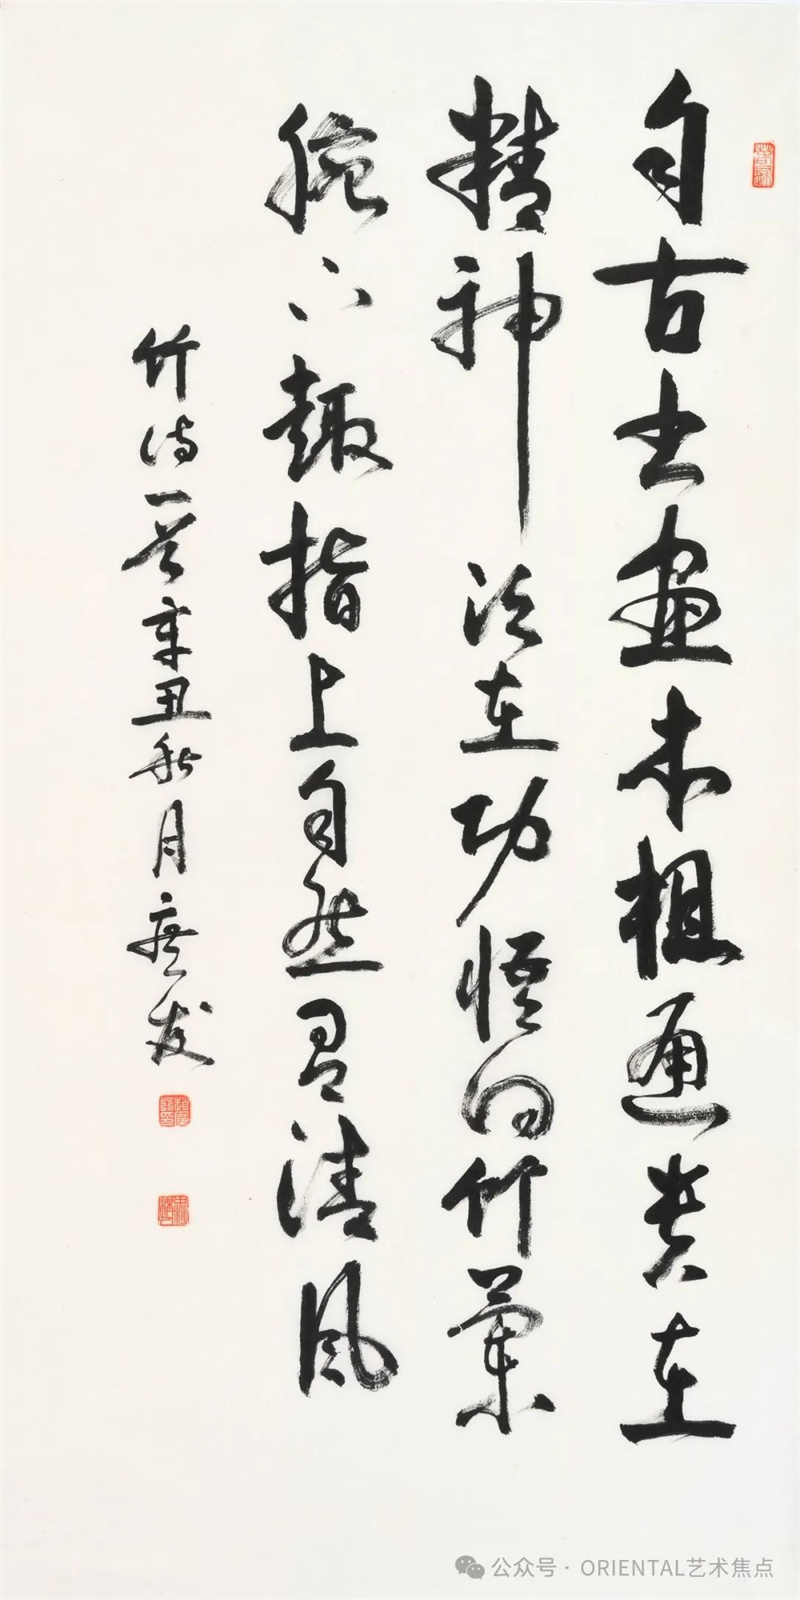 自古书畫本相通贵在
精神法在功悟向竹蘭
腕下趣指上自然有清风
竹诗一首辛丑秋月廣发
公众号· ORIENTAL艺术焦点